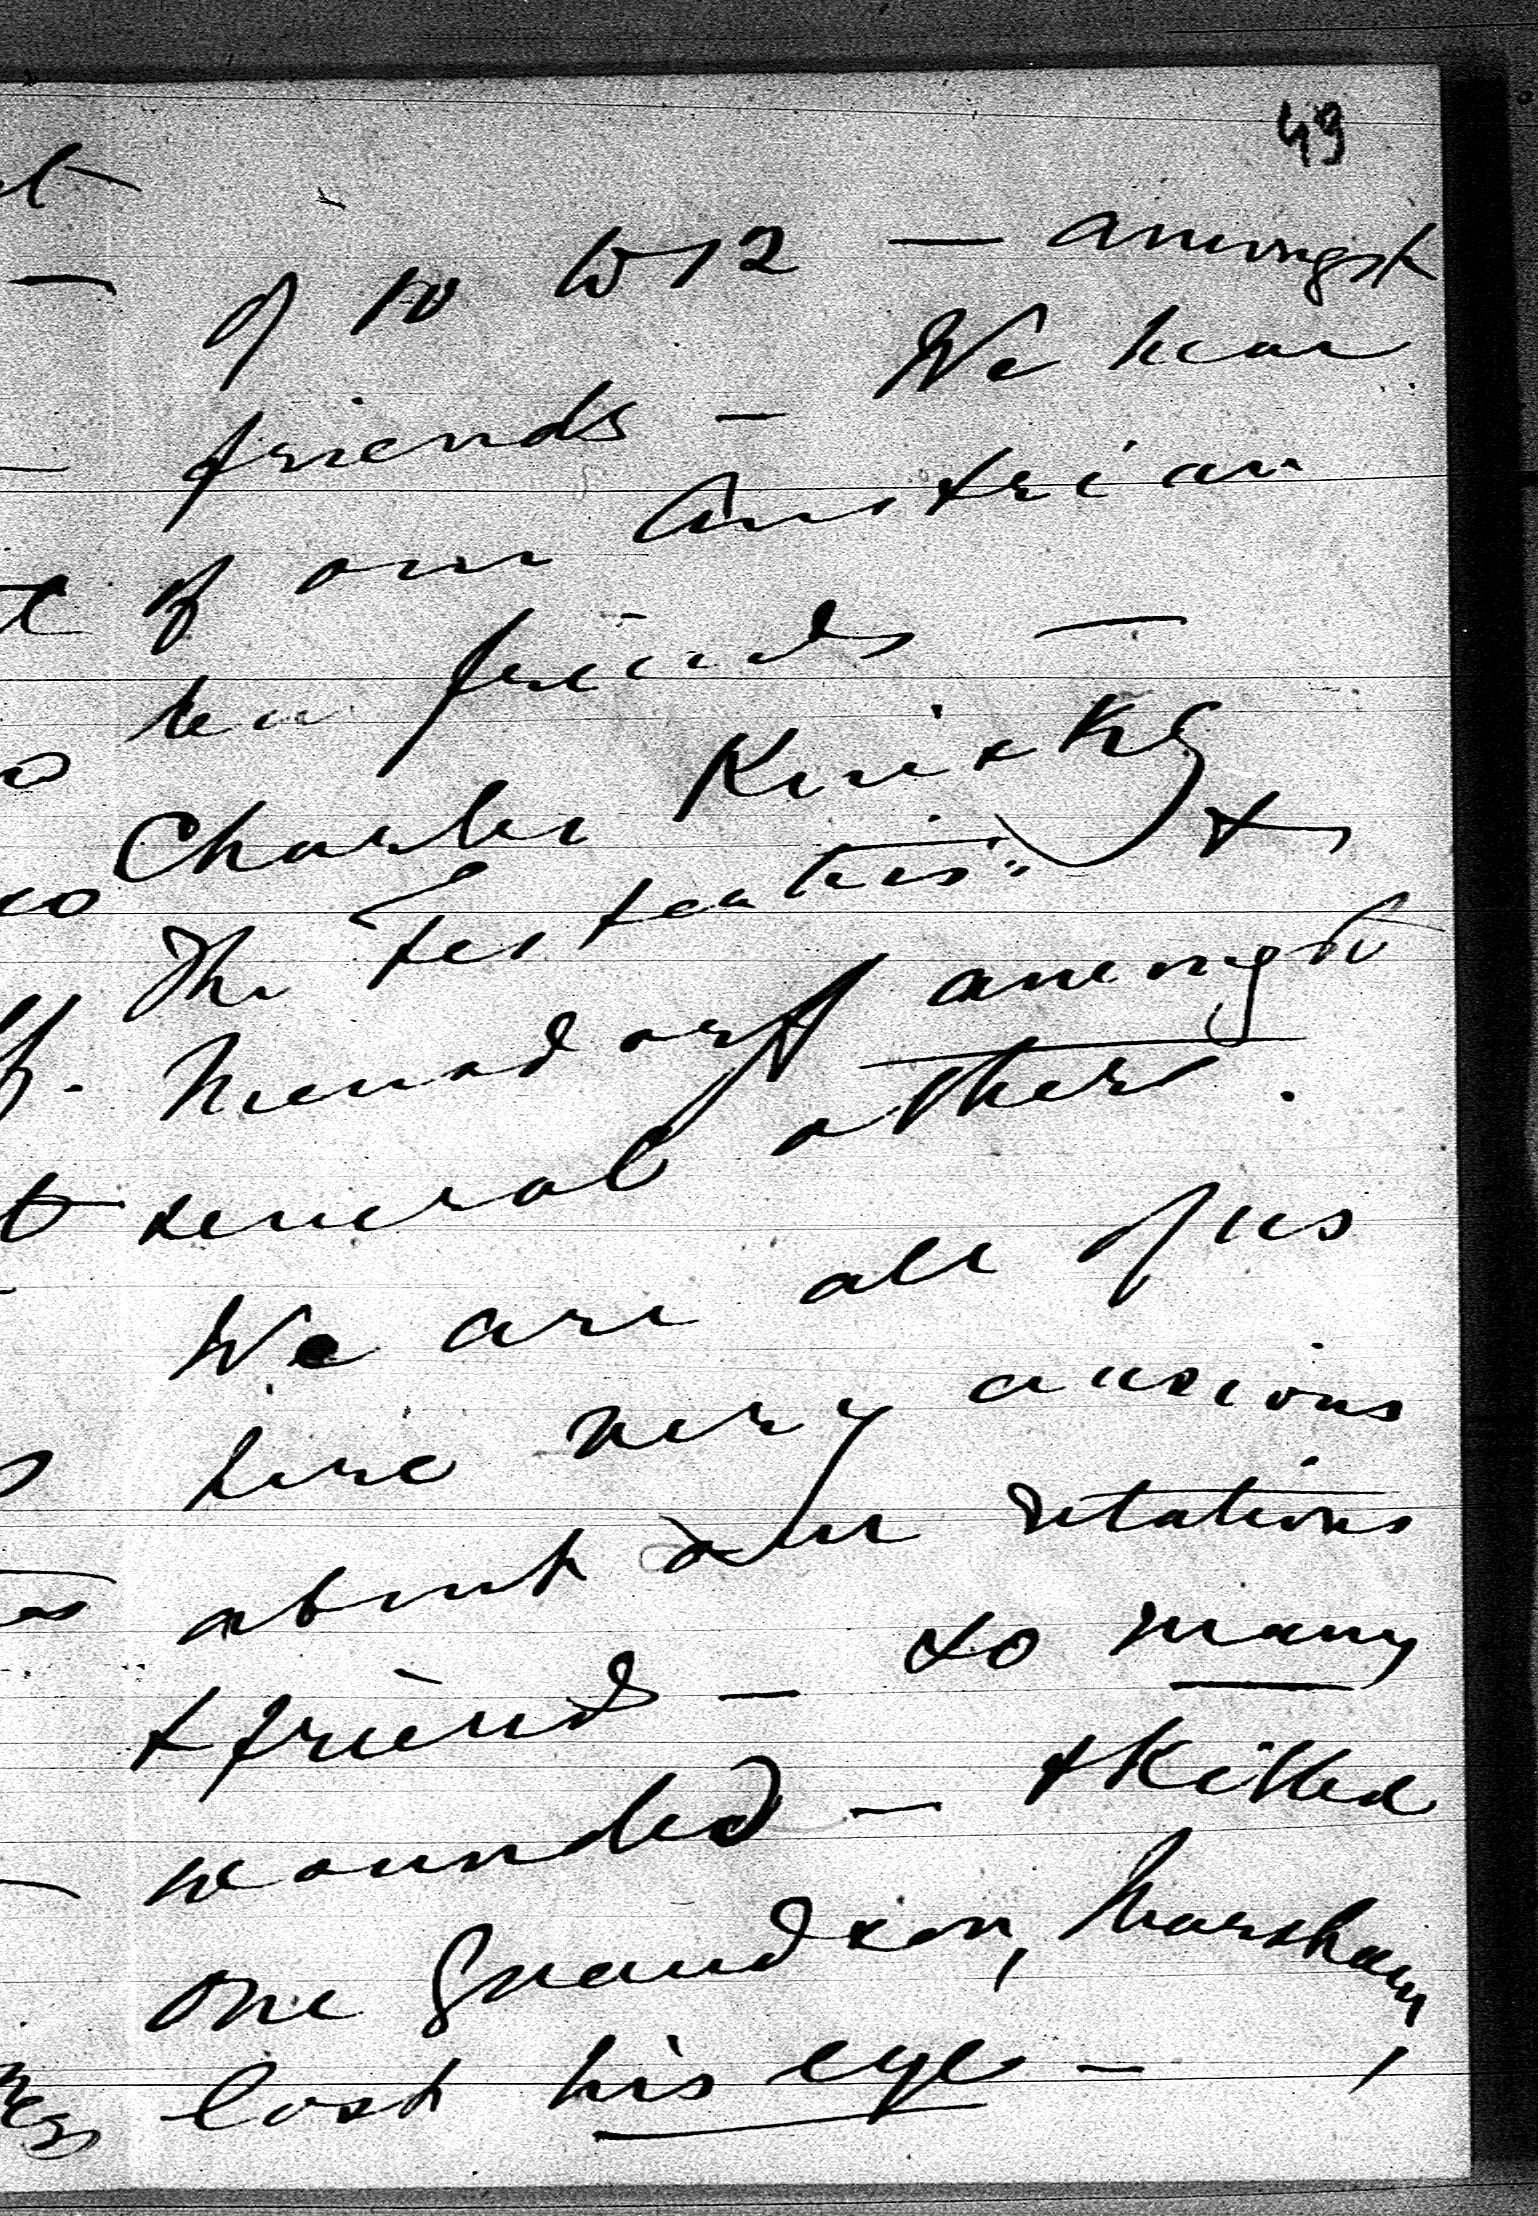 49
of 10 to 12 — amongst
friends — We hear
of our Austrian
ten friends —
Charles Kinsky
The Festetics' &
Mensdorff amongst
several others.
We are all of us
here very anxious
about our relations
& friends — so many
wounded — & killed
one grandson, Marsham,
lost his eye —